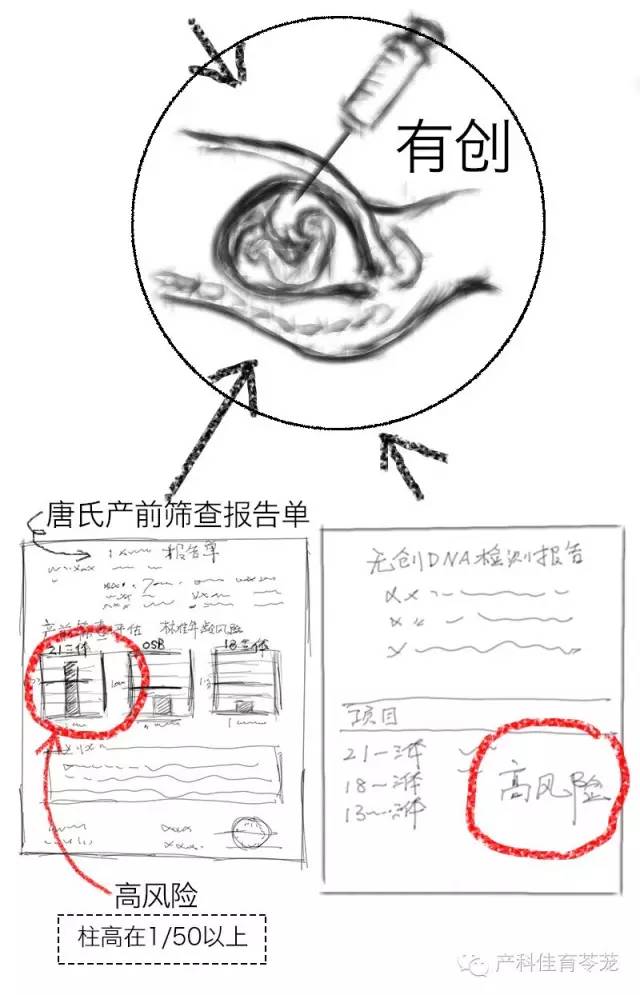 有创
唐氏产前筛查报告单
报告单
产前筛查评估 标准年龄风险
21三体 OSB 18三体
高风险
柱高在1/50以上
无创DNA检测报告
项目
21—三体
18—三体
13—三体
高风险
产科佳育苓茏